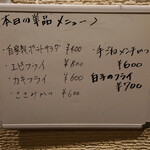 本日の単品メニュー
・自家製ポテトサラダ ¥400
・エビフライ ¥800
・カキフライ ¥600
・ささみかつ ¥600
・手づくりメンチかつ
¥600
白子のフライ
¥700